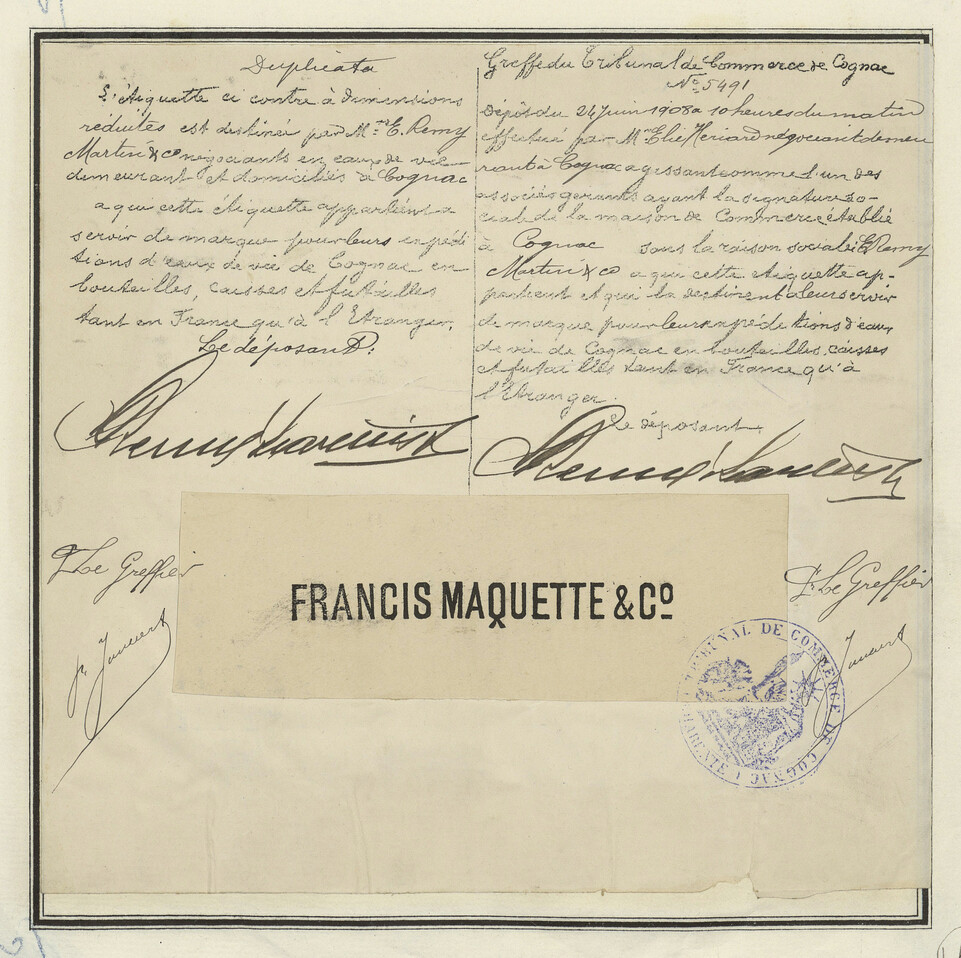 Duplicata
L'étiquette ci contre à dimensions
réduites est destiné par Mrs E. Remy
Martin & co négociants en eaux de vie
demeurant et domiciliés à Cognac
a qui cette étiquette appartient a
servir de marque pour leurs expédi
tions d'eaux de vie de Cognac en
bouteilles, caisses et futailles
tant en France qu'à l'Etranger.
Le déposant:
Greffe du Tribunal de Commerce de Cognac
No 5491
Dépôt du 24 Juin 1908 a 10 heures du matin
effectué par Mr Elie Heriard négociant demeu
rant à Cognac agissant comme l'un des
associés gérants ayant la signature so-
ciale de la maison de Commerce établie
à Cognac sous la raison sociale E. Remy
Martin & co a qui cette étiquette ap-
partient et qui la destinent a leur servir
de marque pour leurs expéditions d'eaux
de vie de Cognac en bouteilles, caisses
et futailles tant en France qu'à
l'Etranger.
Le déposant.
E Remy Martin &
E Remy Martin &
Le Greffier
Le Greffier
FRANCIS MAQUETTE & Co
TRIBUNAL DE COMMERCE DE COGNAC
CHARENTE